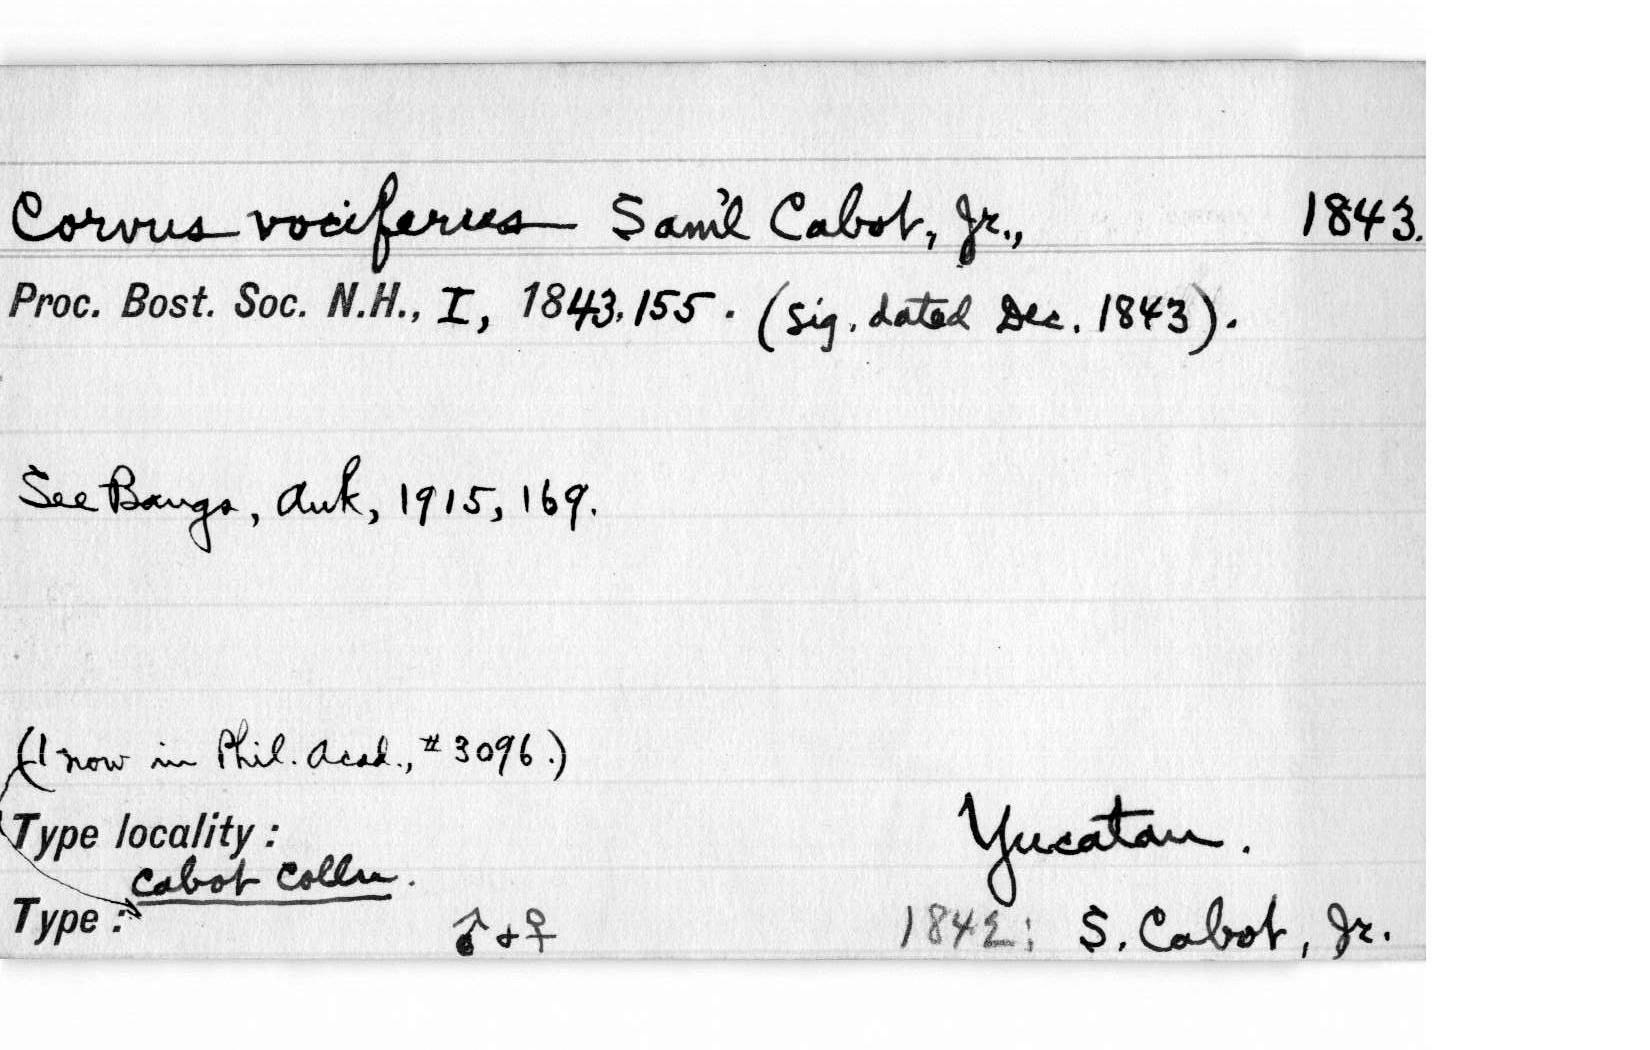 Corvus vociferus Sam'l Cabot, Jr., 1843.
Proc. Bost. Soc. N.H., I, 1843, 155. (sig. dated Dec. 1843).
See Bangs, Auk, 1915, 169.
(1 now in Phil. Acad., # 3096.)
Type locality: Yucatan.
Cabot Colln.
Type: ♂ + ♀ 1842; S. Cabot, Jr.